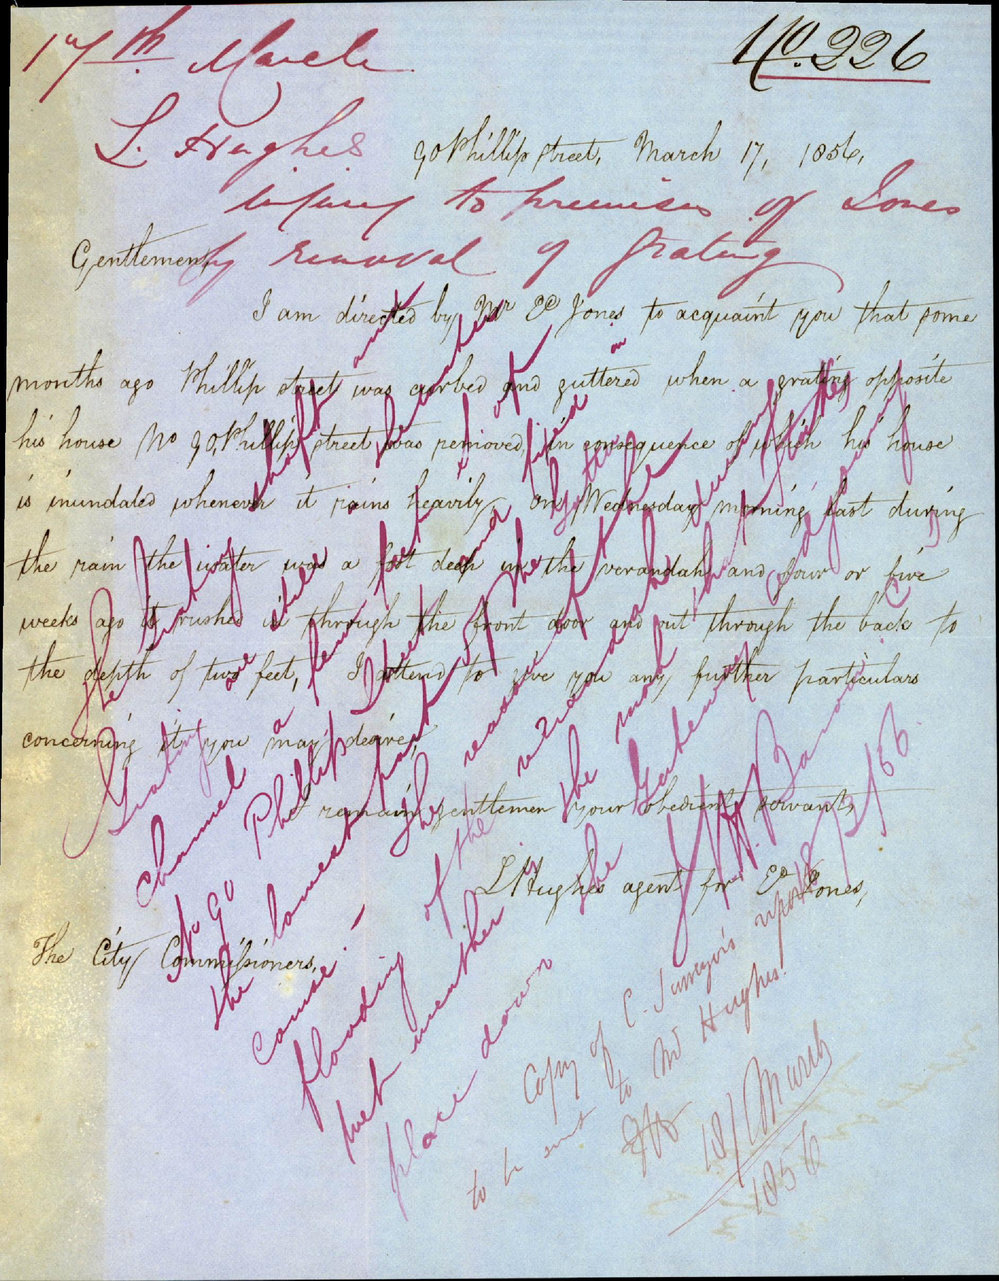 17th. March
No. 226
L. Hughes
90 Phillip Street, March 17, 1856,
injury to premises of Jones
by removal of Grating
Gentlemen,
I am directed by Mr Ed Jones to acquaint you that some
months ago Phillip street was curbed and guttered when a grating opposite
his house No 90, Phillip street was removed, in consequence of which his house
is inundated whenever it rains heavily, On Wednesday morning last during
the rain the water was a foot deep in the verandah and four or five
weeks ago it rushed in through the front door and out through the back to
the depth of two feet, I attend to give you any further particulars
concerning it you may desire,
I remain gentlemen your obedient servant,
L Hughes agent for Ed Jones,
The City Commissioners,
The Grating shaft and
Grating one side
channel a few feet of
No 90 Phillip Street and fixed in
the lowest part of the Gutter
course. The reason of the
flooding of the verandah during
wet weather is the
place down the
18/3/56
Copy of C. Surveyor's report
to be sent to Mr Hughes.
18/March
1856